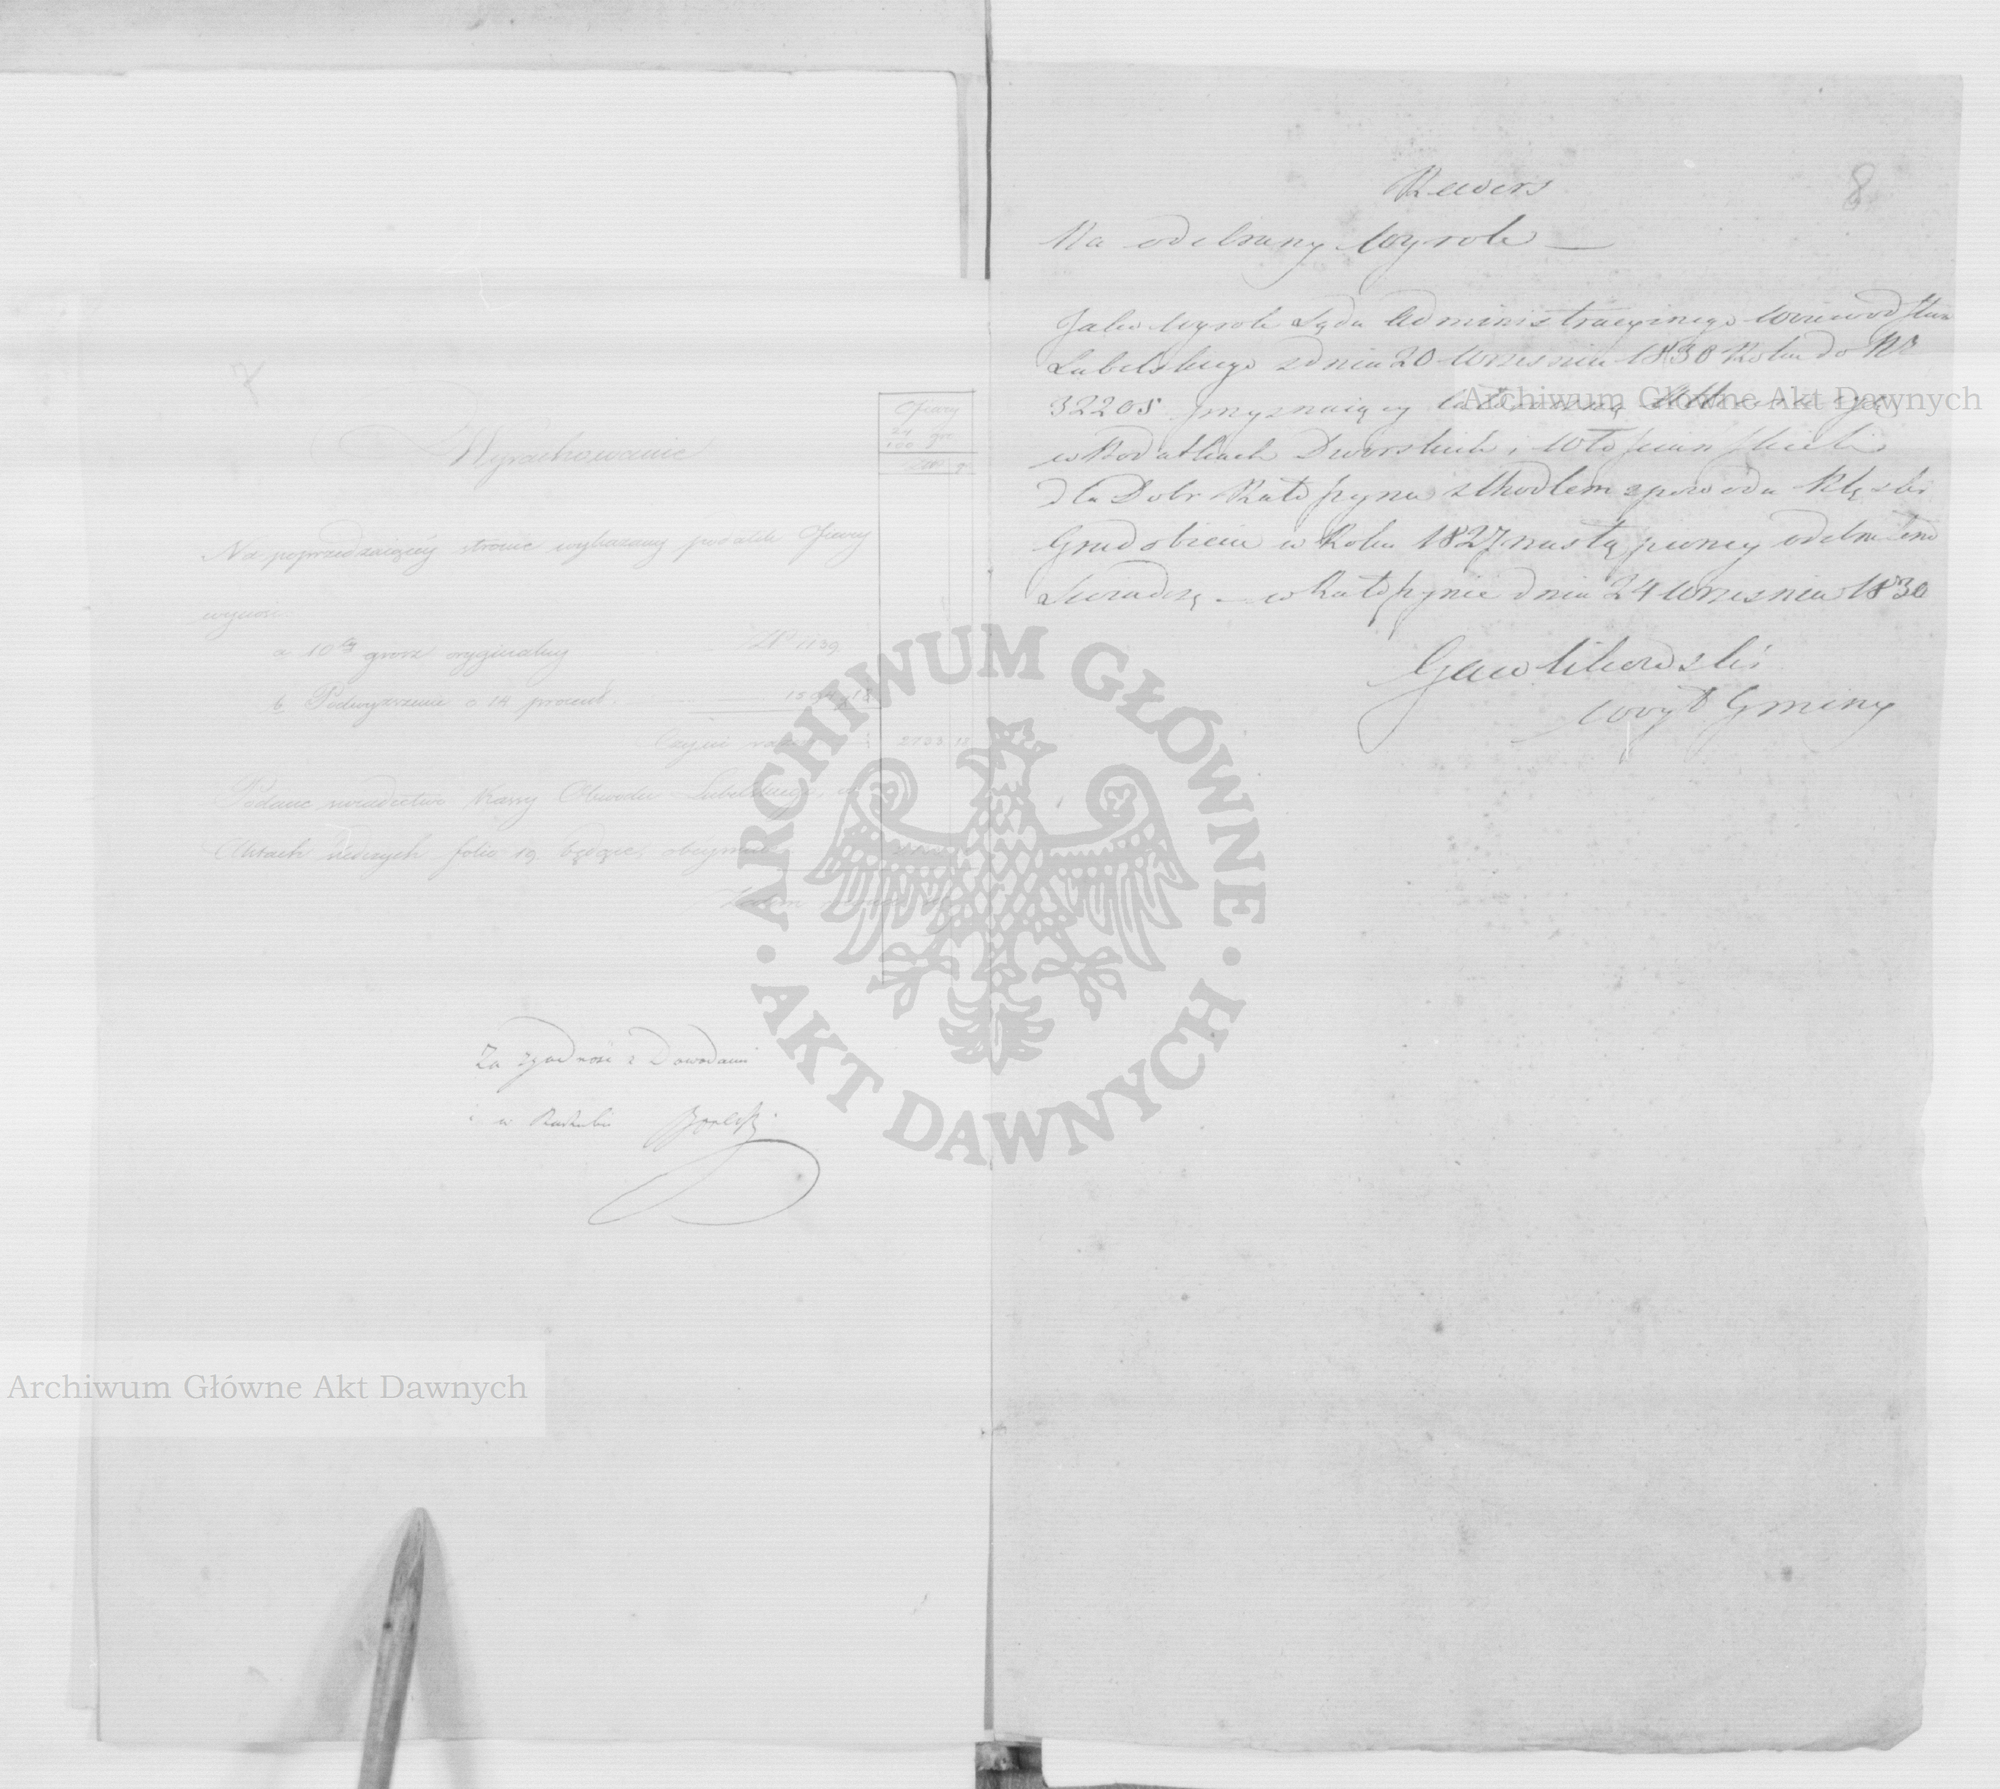 7
Wyrachowanie
Ofiary
24
100 gr.
Na poprzedzającéy stronie wykazany podatek Ofiary
wynosi
a 10ty grosz oryginalny Zł 1139
b Podwyższenie o 14 procent
Czyni razem 2733 12
Podanie Kassy Obwodu Lubelskiego, w
Aktach folio 19 będące, obeymuie
Za zgodność z Dowodami
i w Rachubie
8
Rewers
Na odebrany Wyrok —
Jako Wyrok Sądu Administracyinego Woiewodztwa
Lubelskiego z dnia 20 Wrzesnia 1830 Roku do Nr
32205 przyznaiący
w Podatkach Dworskich i Włosciańskich
dla Dobr Ratoszyna z Chodlem z powodu Klęski
Gradobicia w Roku 1827 nastąpioney odebrałem
Swiadczę — w Ratoszynie dnia 24 Wrzesnia 1830
Gawlikowski
Woyt Gminy
Archiwum Główne Akt Dawnych
ARCHIWUM GŁÓWNE · AKT DAWNYCH ·
Archiwum Główne Akt Dawnych